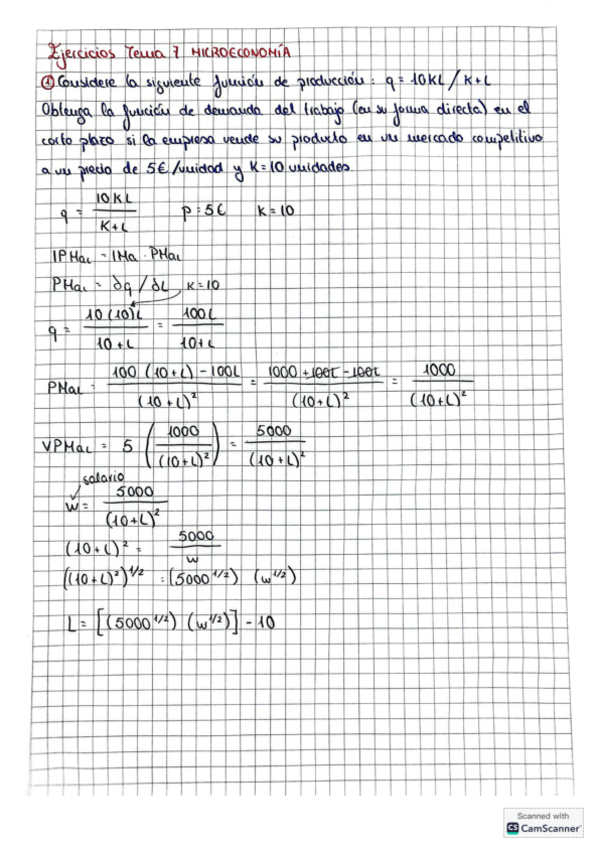 Ejercicios Tema 7 MICROECONOMÍA
① Considere la siguiente función de producción: q = 10KL / K+L
Obtenga la función de demanda del trabajo (en su forma directa) en el
corto plazo si la empresa vende su producto en un mercado competitivo
a un precio de 5€/unidad y K=10 unidades.
q = 10KL / K+L   p = 5€   K = 10
IPMaL = IMa · PMaL
PMaL = ∂q / ∂L   K=10
q = 10(10)L / 10+L = 100L / 10+L
PMaL = 100(10+L) - 100L / (10+L)² = 1000 + 100L - 100L / (10+L)² = 1000 / (10+L)²
VPMaL = 5 (1000 / (10+L)²) = 5000 / (10+L)²
salario
w = 5000 / (10+L)²
(10+L)² = 5000 / w
((10+L)²)^1/2 = (5000^1/2) (w^1/2)
L = [(5000^1/2) (w^1/2)] - 10
Scanned with
CS CamScanner